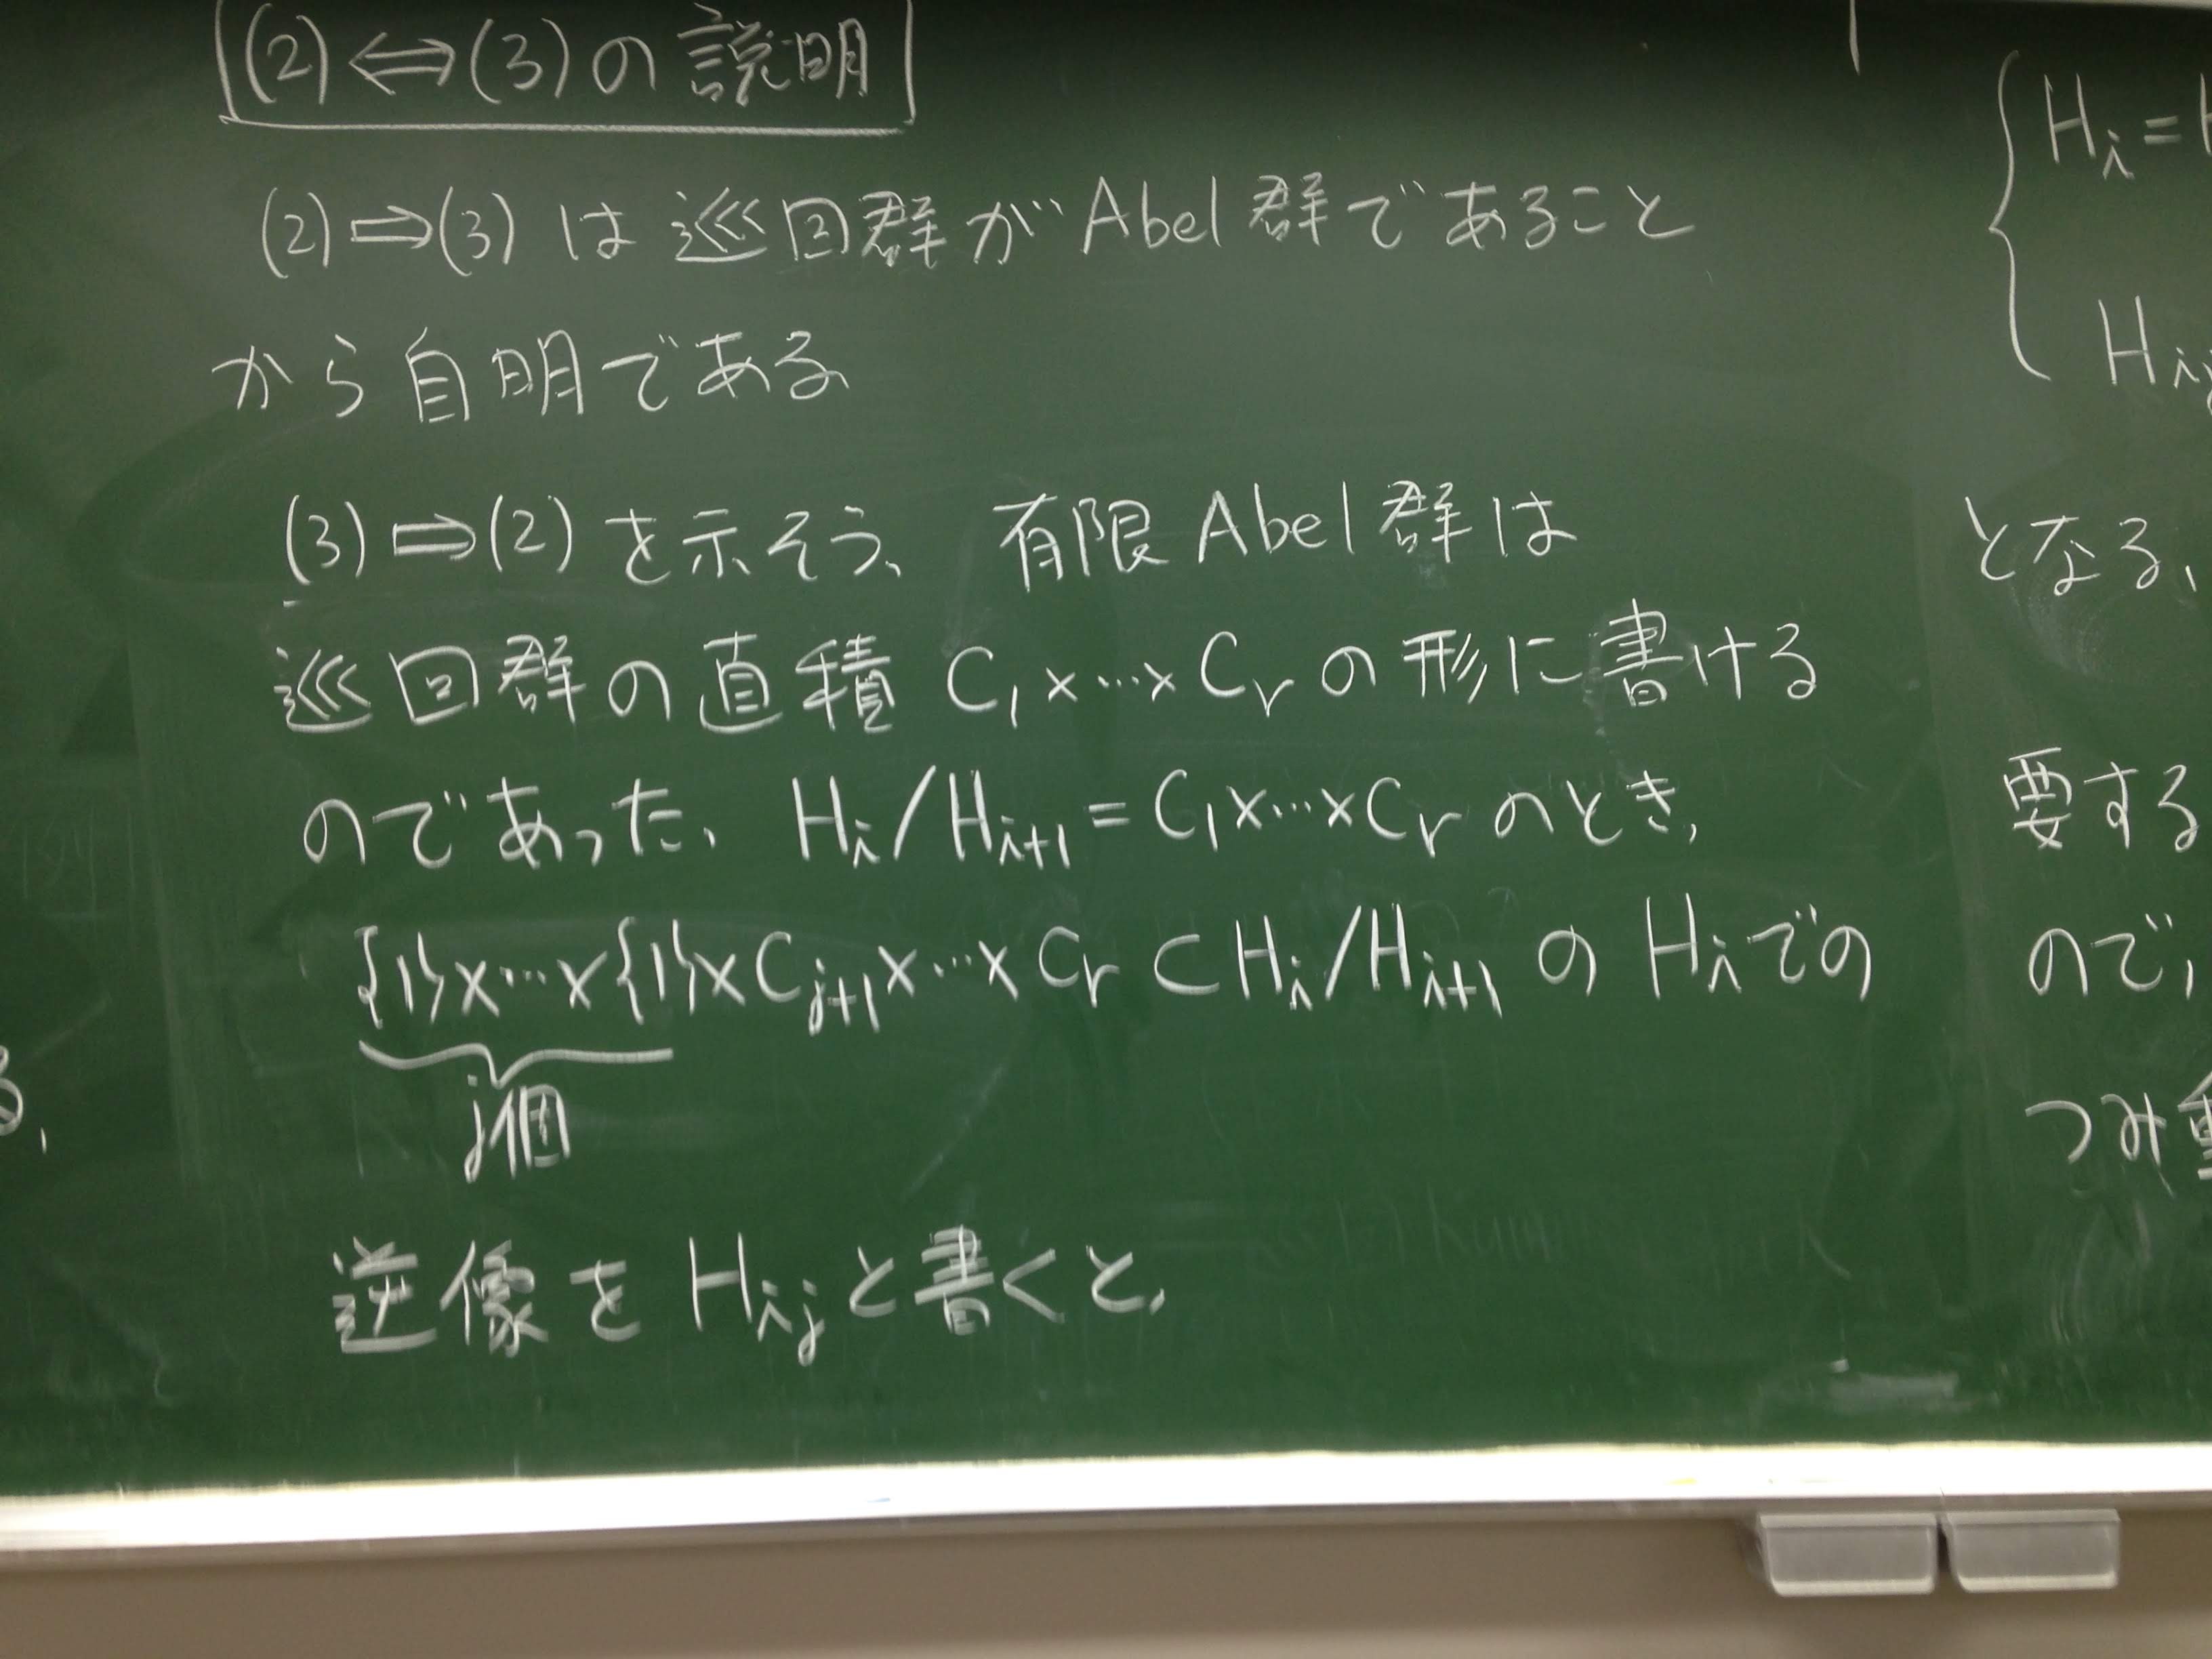 (2)⟺(3)の説明
(2)⟹(3) は巡回群がAbel群であること
から自明である
(3)⟹(2) を示そう、 有限Abel群は
巡回群の直積 C₁×…×Cᵣ の形に書ける
のであった、 Hᵢ/Hᵢ₊₁ = C₁×…×Cᵣ のとき,
{1}×…×{1}×Cⱼ₊₁×…×Cᵣ ⊂ Hᵢ/Hᵢ₊₁ の Hᵢでの
j個
逆像を Hᵢⱼと書くと,
Hᵢ=
Hᵢⱼ
となる、
要する
ので,
つみ重